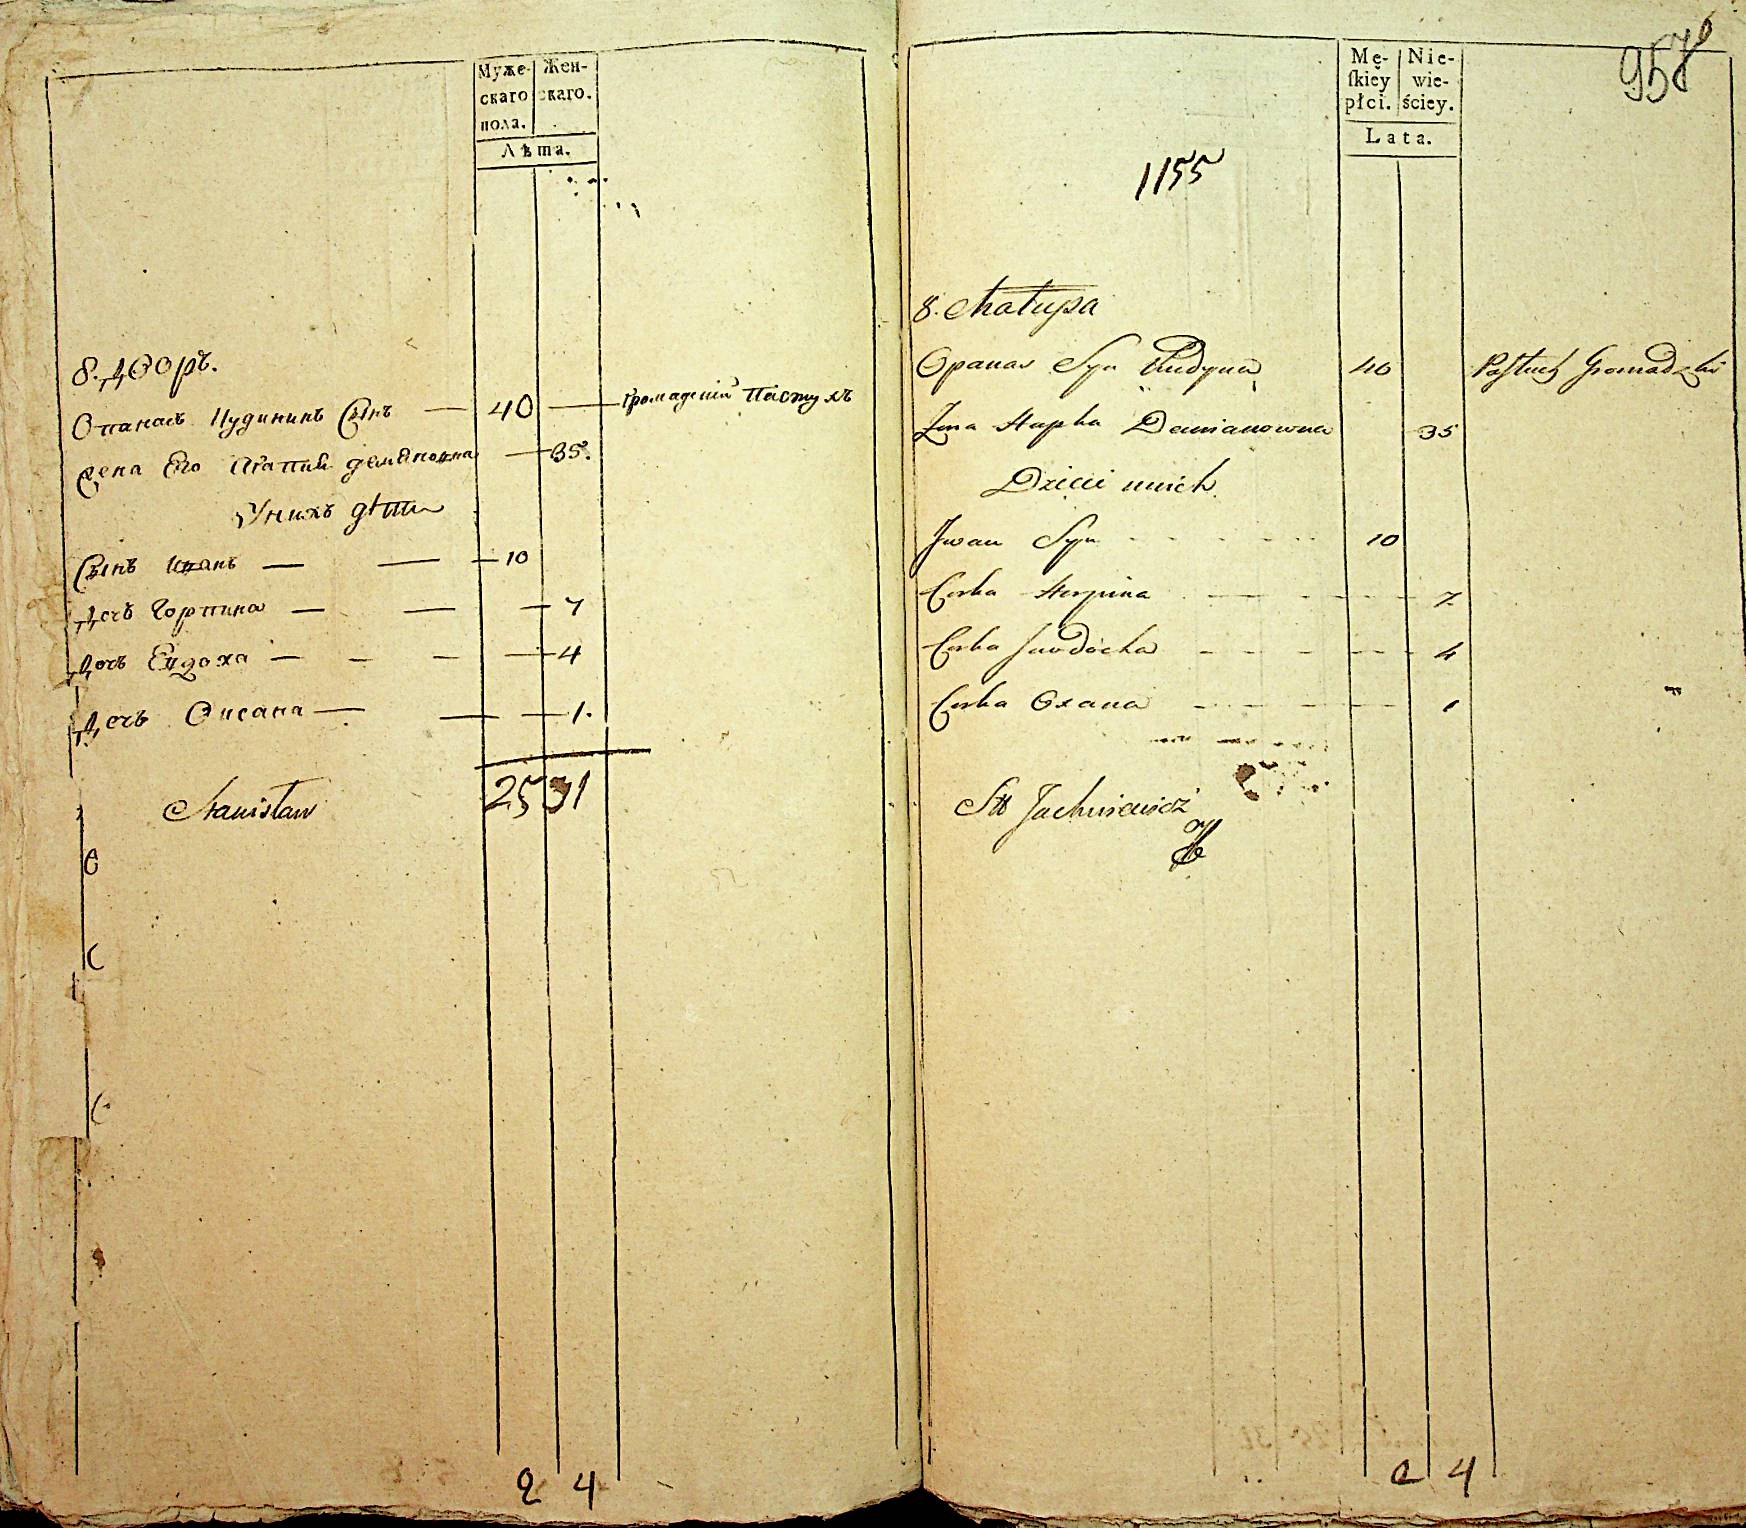 Муже- Жен-
скаго скаго.
пола.
Лѣта.
8. Дворъ.
Опанасъ Кудининъ Сынъ — 40 — громадскій Пастухъ
Жена Его Агапия демяновна — 35.
У нихъ дѣти
Сынъ Иванъ — — 10
Дочь Горпина — — — 7
Дочь Евдоха — — — — 4
Дочь Оксана — — — 1.
25 31
Stanisław
2 4
Mę- Nie-
ſkiey wie-
płci. ściey.
Lata.
957
1155
8. Chałupa
Opanas Syn Kudyna 40 Pastuch Gromadzki
Żona Hapka Demianowna 35
Dzieci u nich
Jwan Syn 10
Corka Horpina 7
Corka Jawdocha 4
Corka Oxana 1
Jachniewicz
2 4